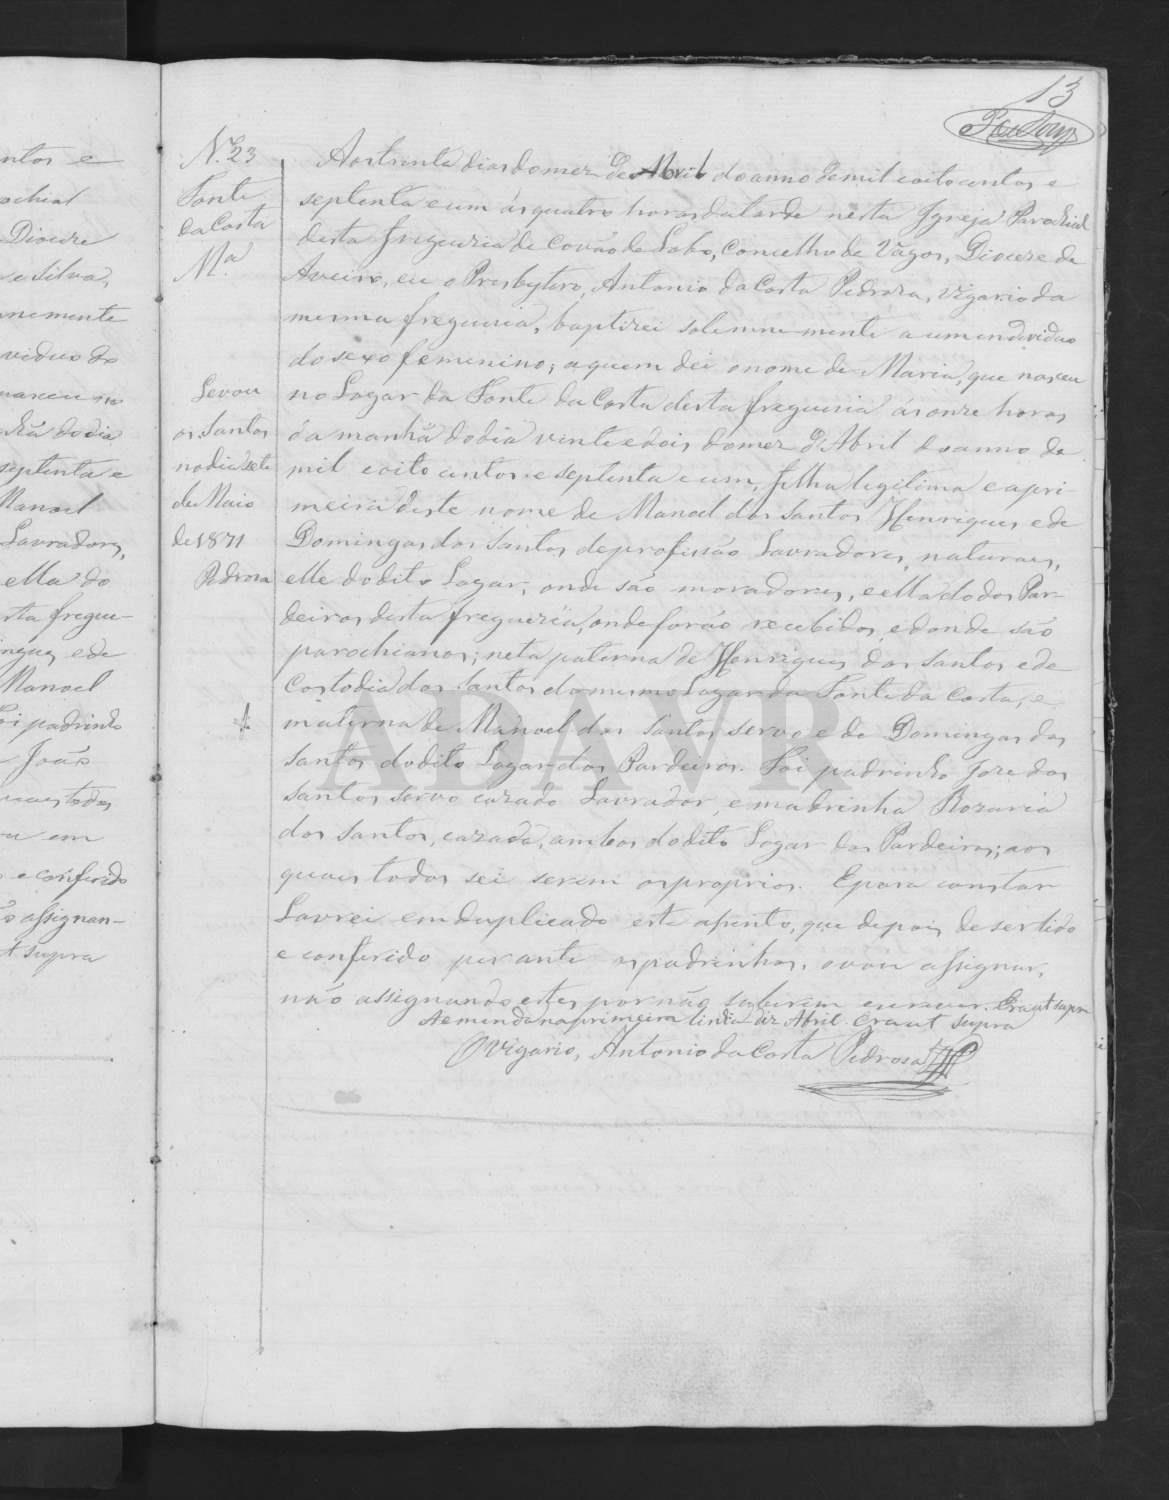 13
N.º 23
Fonte
da Costa
M.ª
Levou
os Santos
no dia sete
de Maio
de 1871
Pedrosa
Aos trinta dias do mez de Abril do anno de mil oito centos e
septenta e um ás quatro horas da tarde nesta Igreja Parochial
desta freguezia de Covão do Lobo, Concelho de Vagos, Diocese de
Aveiro, eu o Presbytero, Antonio da Costa Pedrosa, Vigario da
mesma freguesia, baptizei solemne-mente a um endividuo
do sexo femenino; a quem dei o nome de Maria, que nasceu
no Lugar da Fonte da Costa desta freguesia ás onze horas
da manhã do dia vinte e dois do mez d'Abril do anno de
mil e oito centos e septenta e um, filha legitima e a pri-
meira deste nome de Manoel dos Santos Henriques e de
Domingas dos Santos de profissão Lavradores, naturaes,
elle do dito Lugar, onde são moradores, e ella do dos Par-
deiros desta freguezia, onde forão recebidos, e donde são
parochianos; neta paterna de Henriques dos Santos e de
Costodia dos Santos do mesmo Lugar da Fonte da Costa, e
materna de Manoel dos Santos servo e de Domingas dos
Santos do dito Lugar dos Pardeiros. Foi padrinho Joze dos
Santos servo cazado Lavrador, e madrinha Rozaria
dos Santos, cazada, ambos do dito Lugar dos Pardeiros; aos
quaes todos sei serem os proprios. E para constar
Lavrei em duplicado este assento, que depois de ser lido
e conferido perante os padrinhos, o vou assignar,
não assignando estes por não saberem escrever. Era ut supra
A emenda na primeira linha diz Abril. Era ut supra
O Vigario, Antonio da Costa Pedrosa
ADAVR
ntos e
ochial
Diocese
e Silva,
nemente
viduo do
nasceu no
nhã do dia
septenta e
Manoel
Lavradores,
ella do
sta fregue-
ques e de
Manoel
Foi padrinho
João
quaes todos
em
e conferido
assignan-
t supra